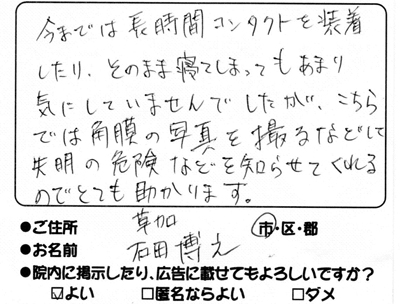 今までは長時間コンタクトを装着
したり、そのまま寝てしまってもあまり
気にしていませんでしたが、こちら
では角膜の写真を撮るなどして
失明の危険などを知らせてくれる
のでとても助かります。
●ご住所 草加 市・区・郡
●お名前 石田博え
●院内に掲示したり、広告に載せてもよろしいですか?
☑よい □匿名ならよい □ダメ